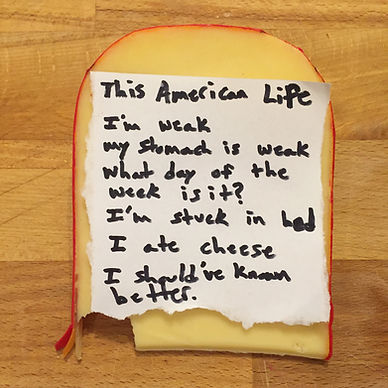 This American Life
I'm weak
my stomach is weak
what day of the
week is it?
I'm stuck in bed
I ate cheese
I should've known
better.